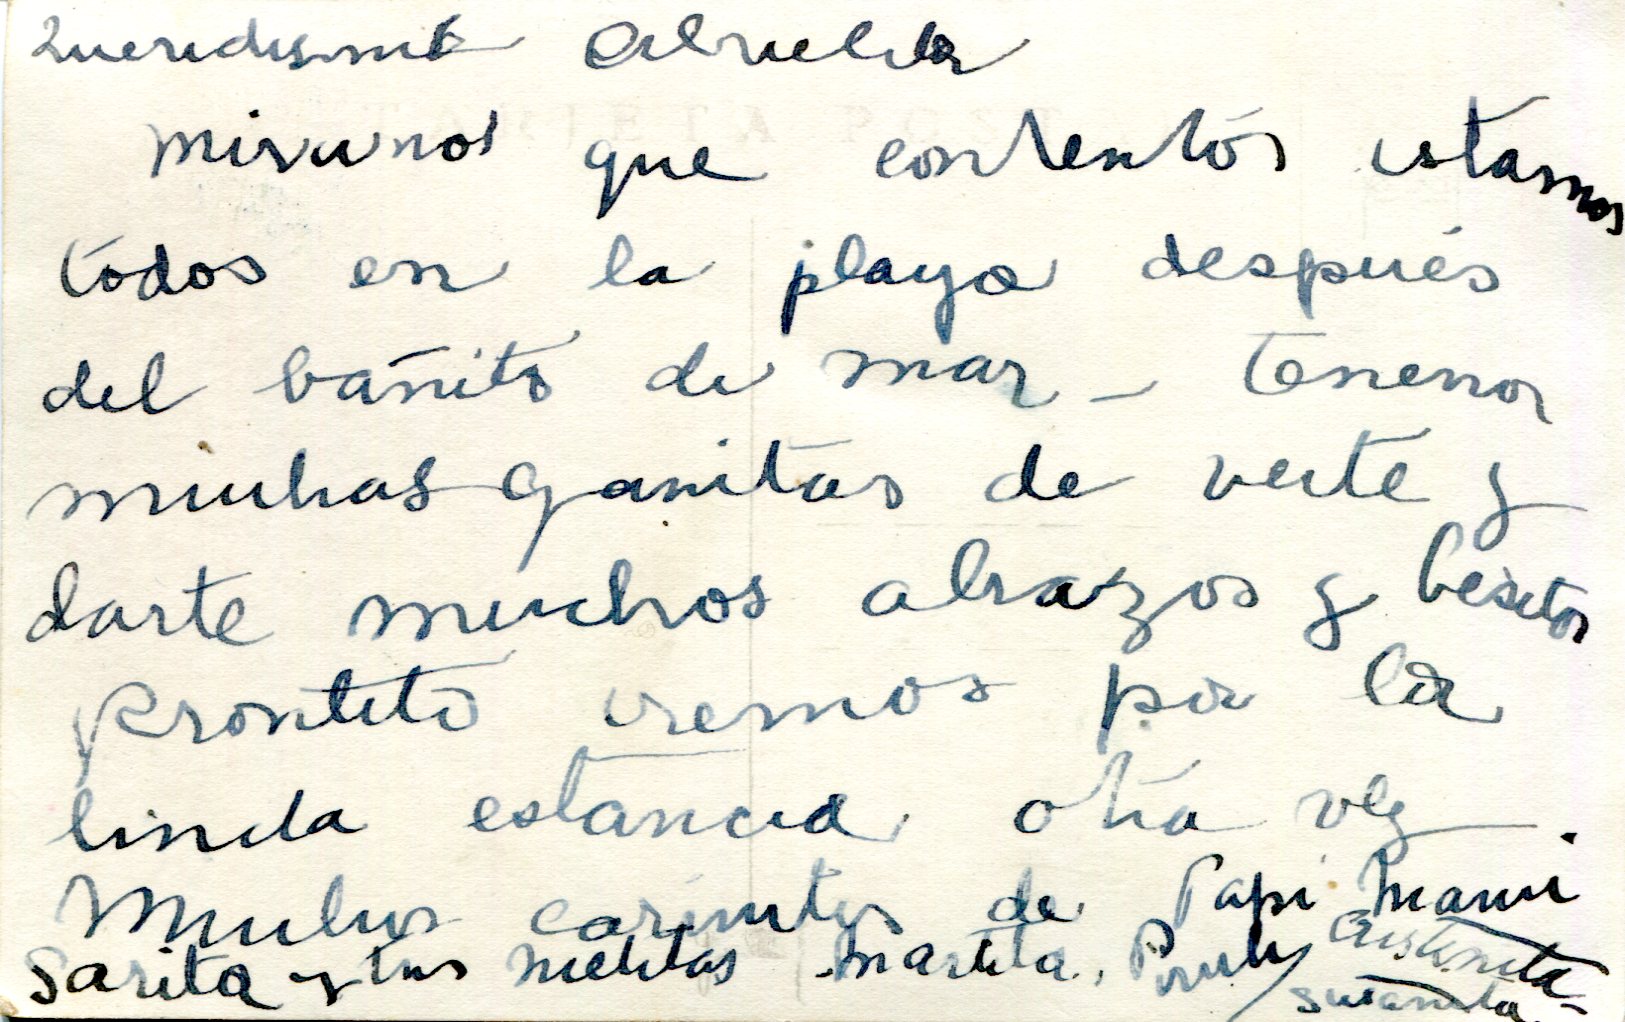 Queridisima Abuelita
miranos que contentos estamos
todos en la playa después
del bañito de mar - tenemos
muchas ganitas de verte y
darte muchos abrazos y besitos
prontito iremos por la
linda estancia otra vez.
Muchos cariñitos de Papi Mami
Sarita y tus nietitas Martita, Cristinita -
Susanita